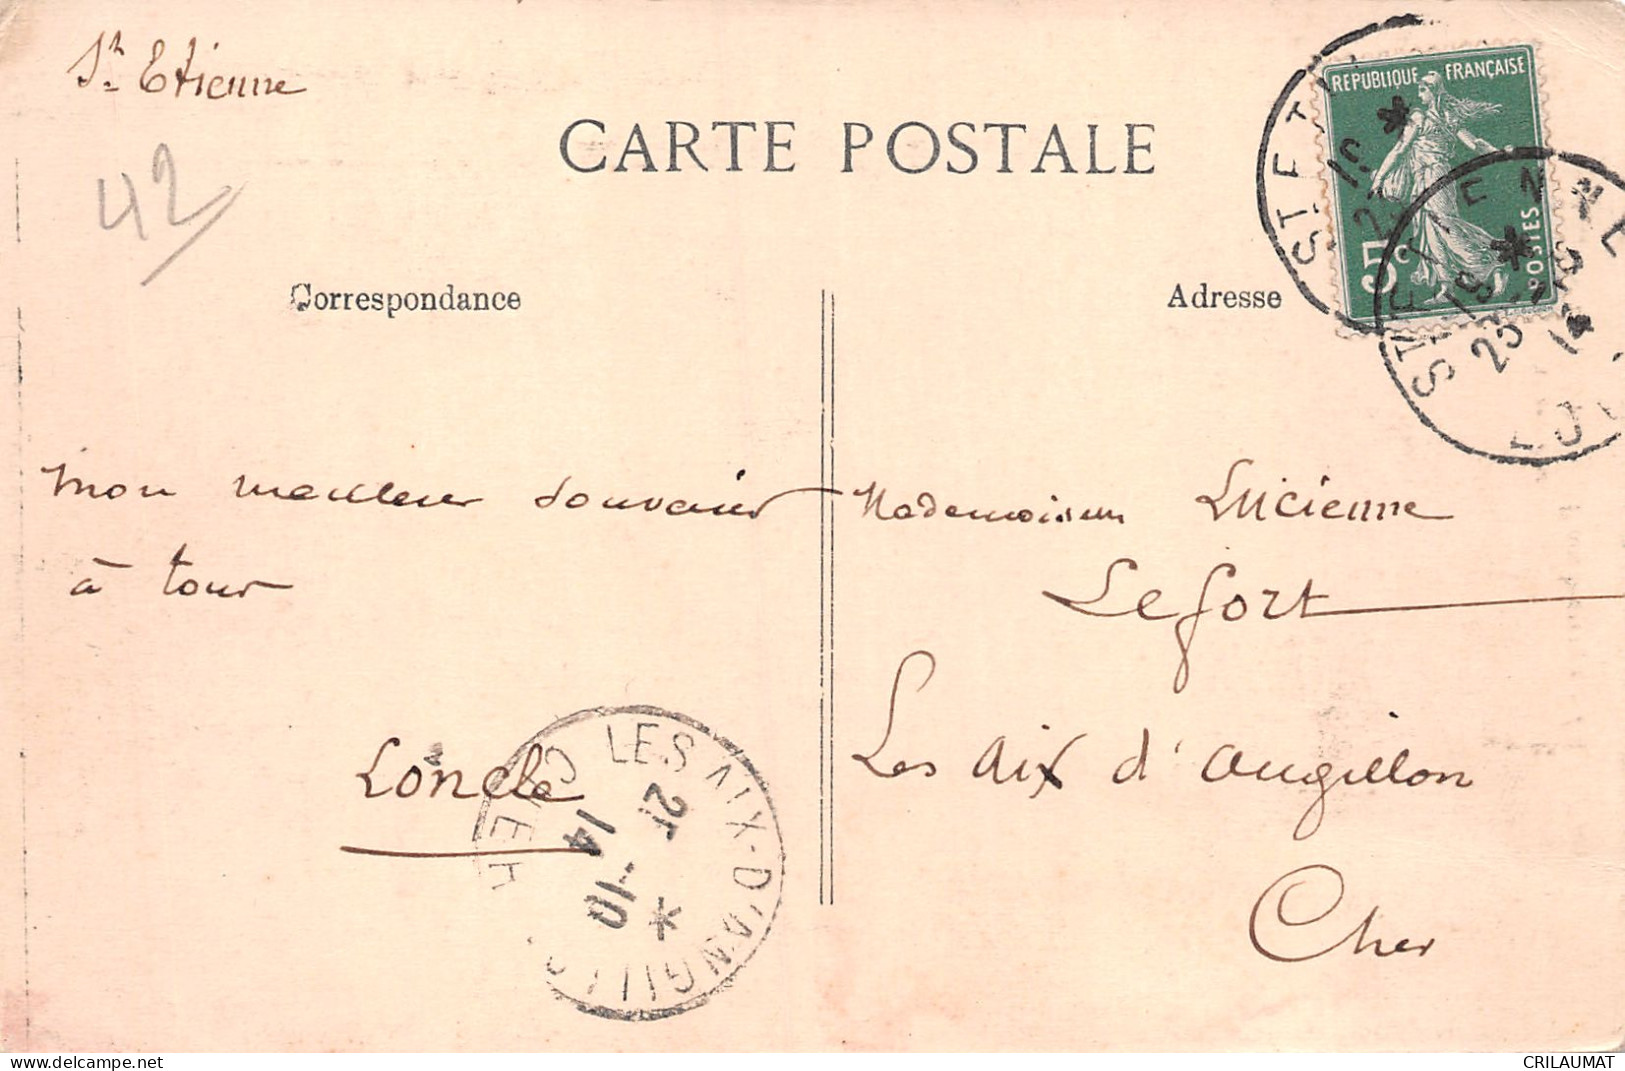 St Etienne
CARTE POSTALE
REPUBLIQUE FRANÇAISE
5c POSTES
42
Correspondance
Adresse
ST ETIENNE
mon meilleur souvenir
à tous
Loncle
Mademoiselle Lucienne
Lefort
Les Aix d'Augillon
Cher
LES AIX-D'ANGILLO CHER
14 -10
delcampe.net
CRILAUMAT